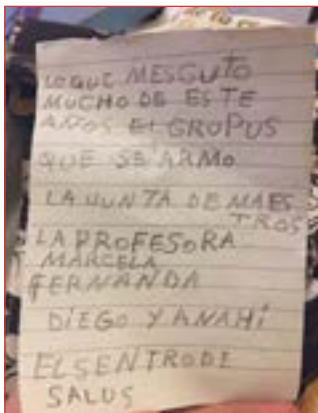 LOQUE MESGUTO
MUCHO DE ESTE
AÑOS El GROPUS
QUE SE ARMO
LA JUNTA DE MAES
TROS
LA PROFESORA
MARCELA
FERNANDA
DIEGO Y ANAHÍ
EL SENTRO DE
SALUS